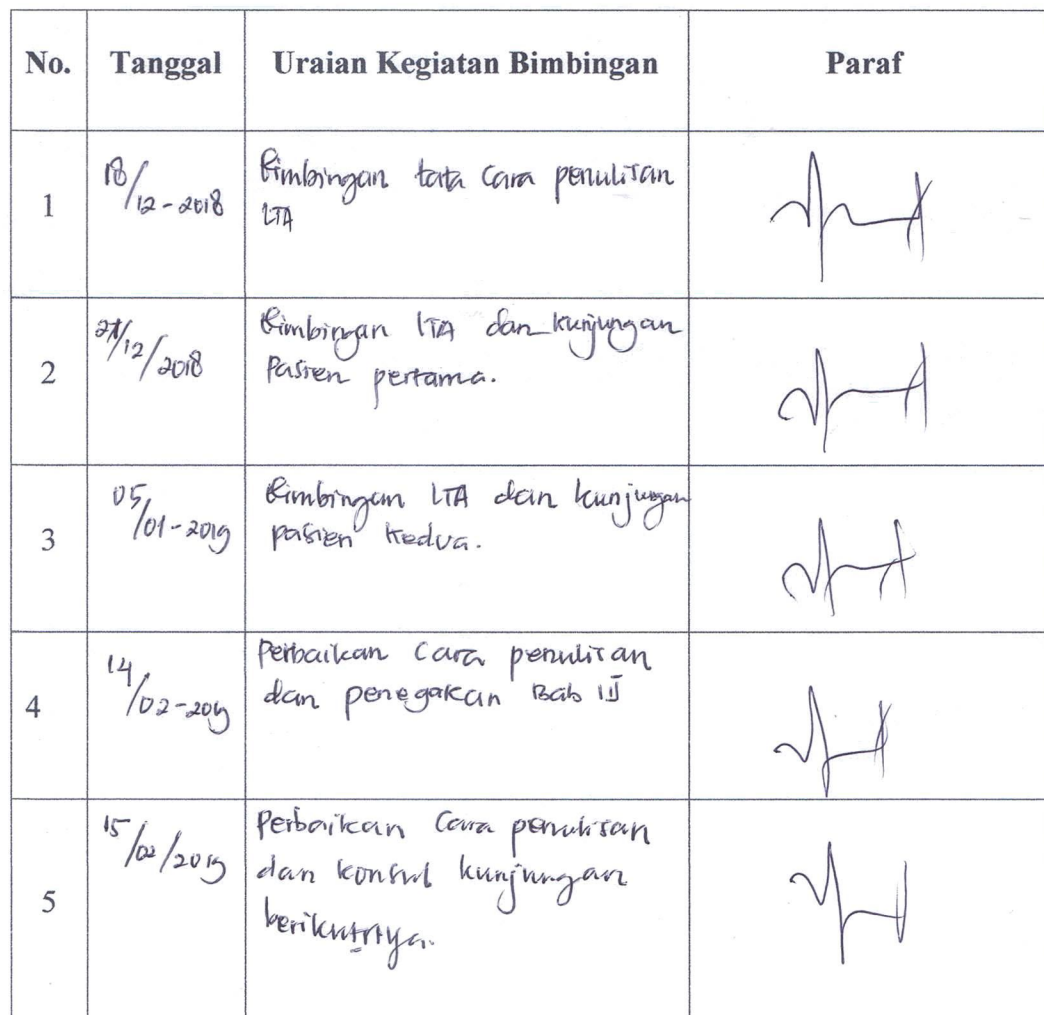 No. Tanggal Uraian Kegiatan Bimbingan Paraf
1 18/12-2018 Bimbingan tata cara penulisan
LTA
2 /12/2018 Bimbingan LTA dan kunjungan
Pasien pertama.
3 05/01-2019 Bimbingan LTA dan kunjungan
pasien kedua.
4 14/02-2019 Perbaikan cara penulisan
dan penegakan Bab
5 15/02/2019 Perbaikan cara penulisan
dan konsul kunjungan
berikutnya.